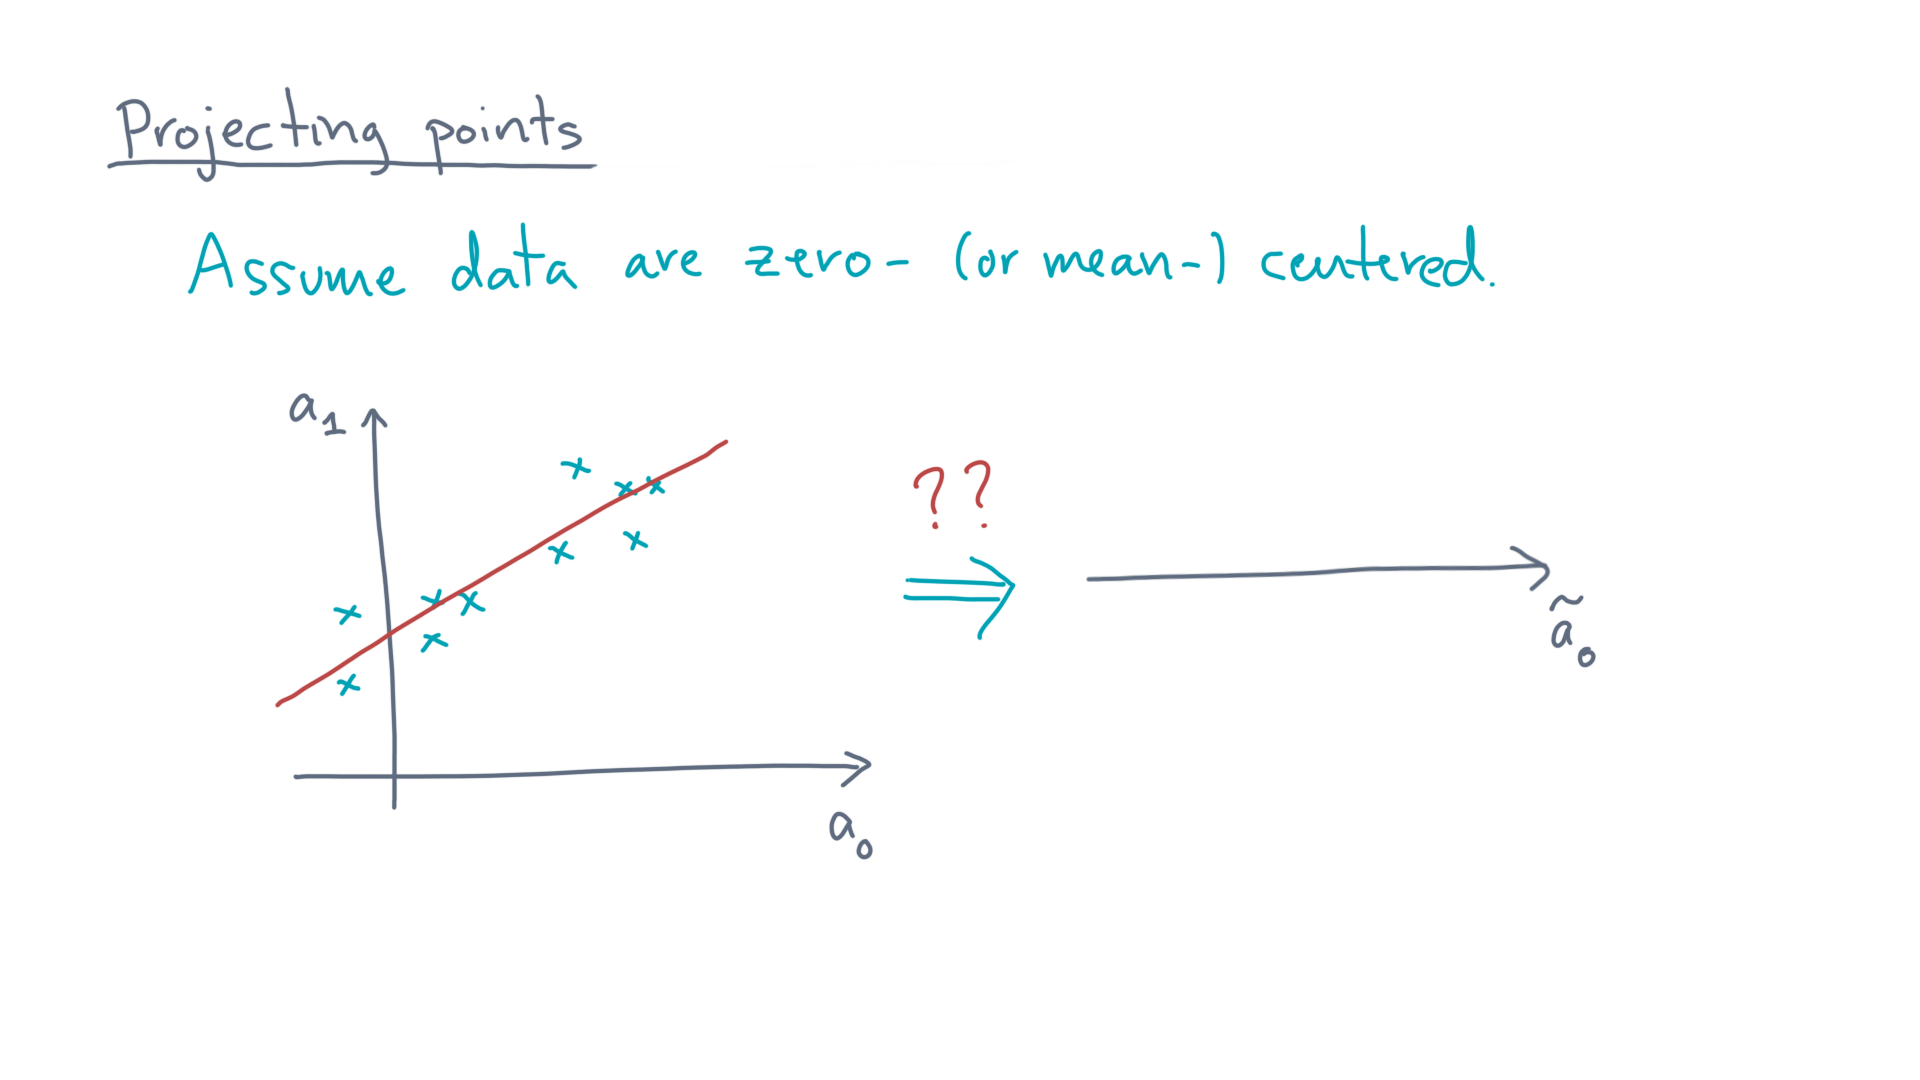 Projecting points
Assume data are zero- (or mean-) centered.
a₁
??
ã₀
a₀